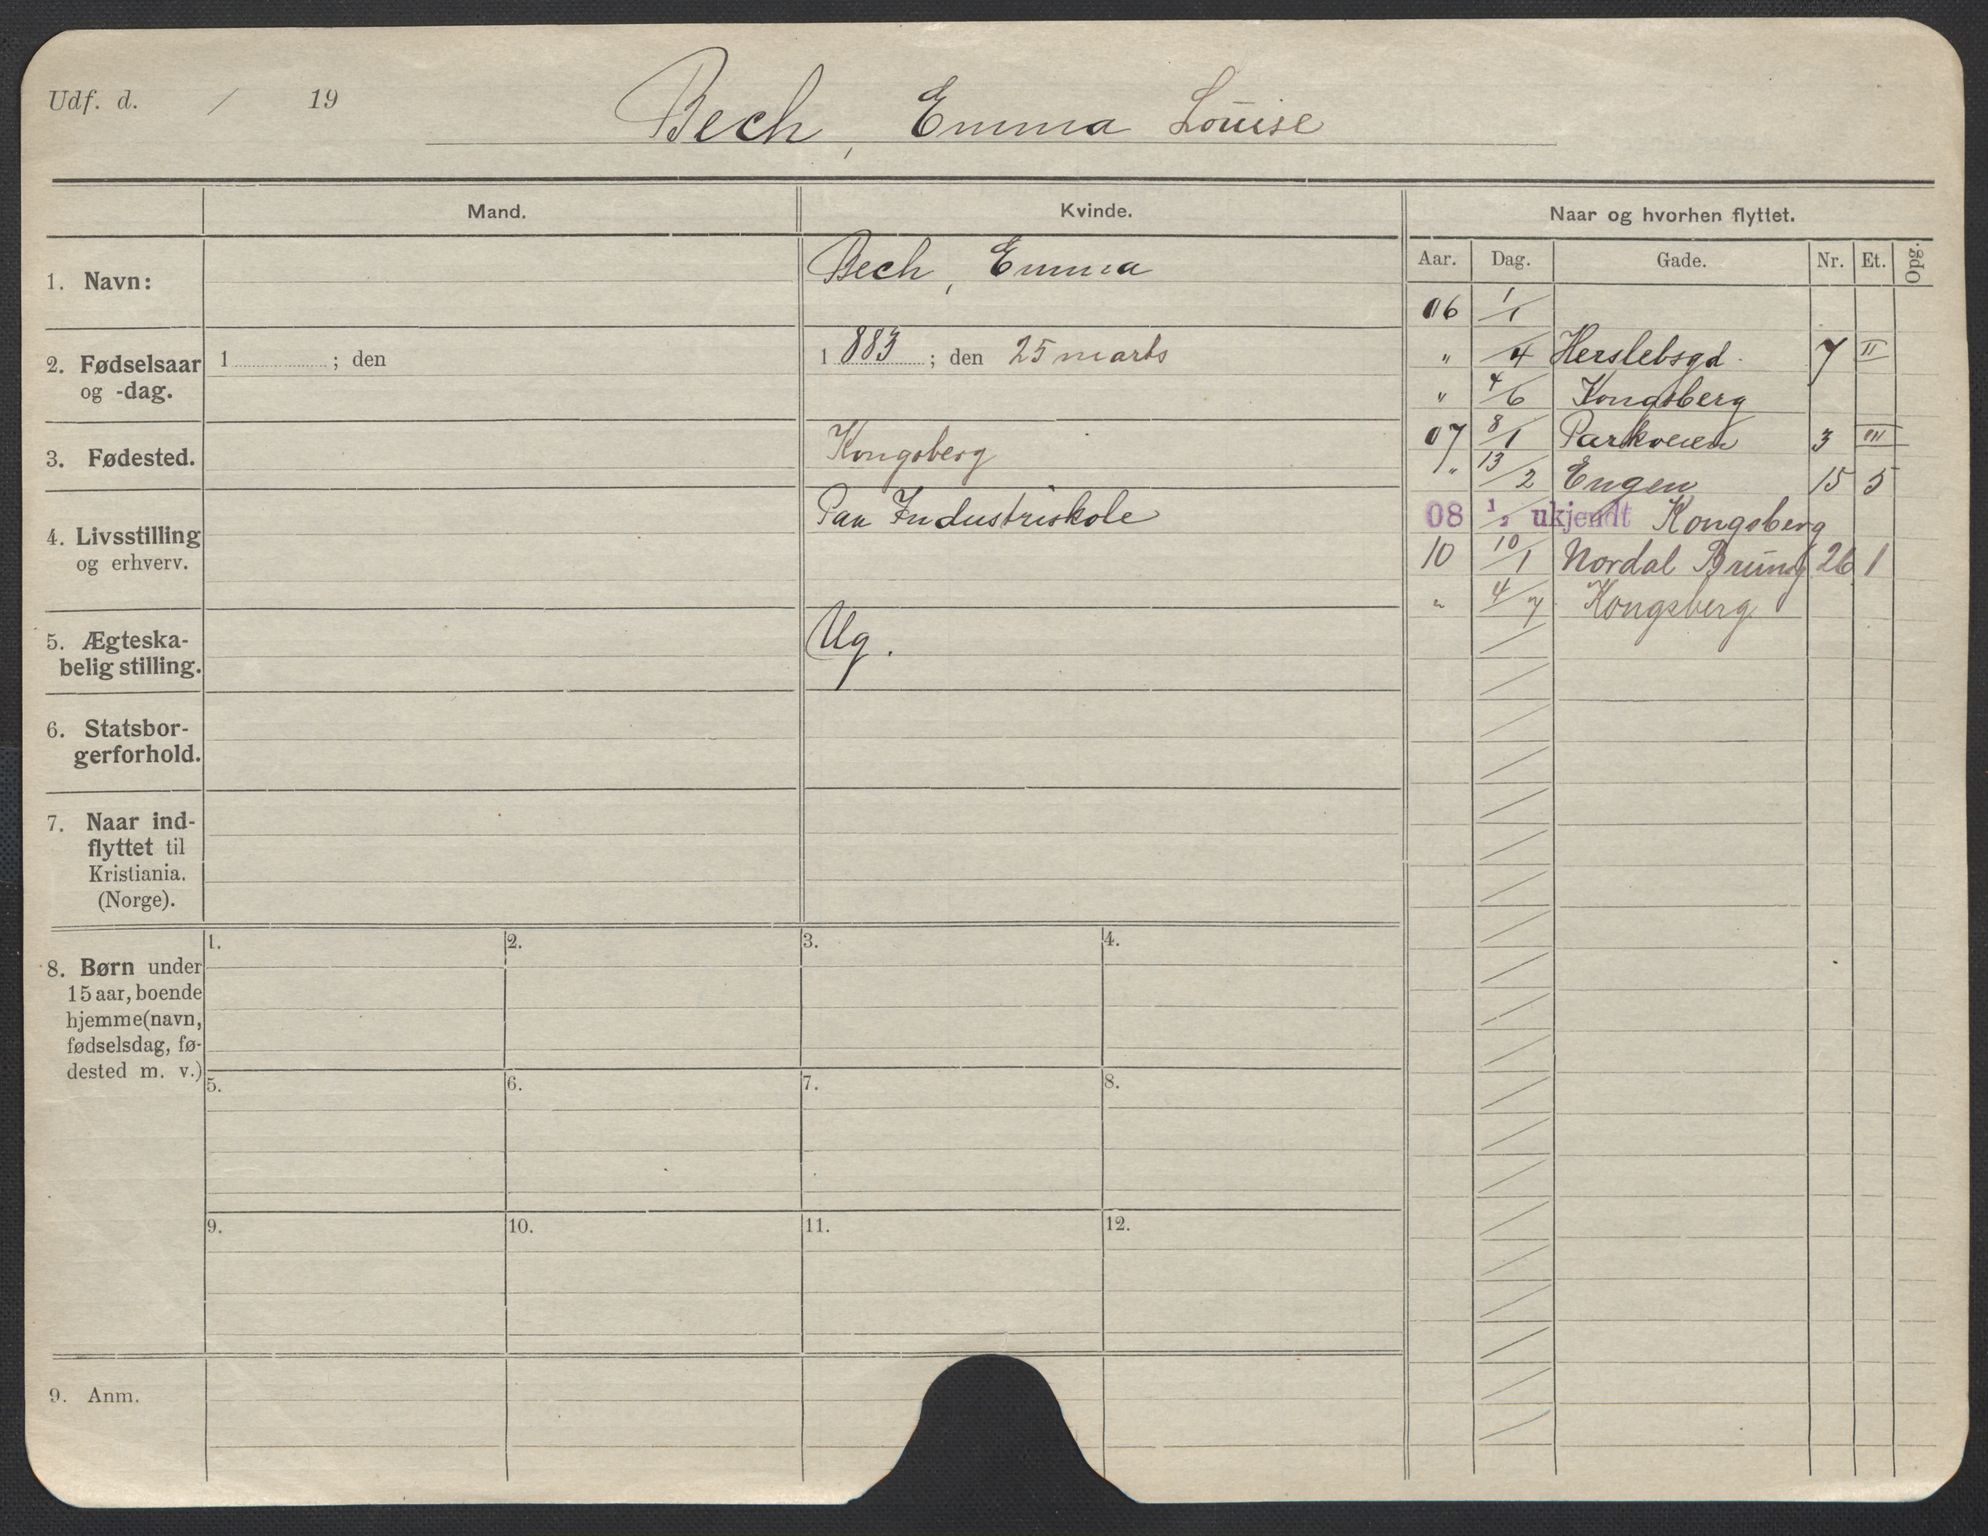 Udf. d. / 19
Bech, Emma Louise
Mand.
Kvinde.
Naar og hvorhen flyttet.
Aar. Dag. Gade. Nr. Et. Opg.
1. Navn:
Bech, Emma
2. Fødselsaar
og -dag.
1 ; den
1 883 ; den 25 marts
3. Fødested.
Kongsberg
4. Livsstilling
og erhverv.
Paa Industriskole
5. Ægteska-
belig stilling.
Ug.
6. Statsbor-
gerforhold.
7. Naar ind-
flyttet til
Kristiania.
(Norge).
8. Børn under
15 aar, boende
hjemme (navn,
fødselsdag, fø-
dested m. v.)
1. 2. 3. 4.
5. 6. 7. 8.
9. 10. 11. 12.
9. Anm.
06 1/1
" /4 Herslebsgd. 7 II
" 4/6 Kongsberg
07 8/1 Parkveien 3 III
" 13/2 Engen 15 5
08 1/2 ukjendt Kongsberg
10 10/1 Nordal Brunsg 26 1
" 4/7 Kongsberg